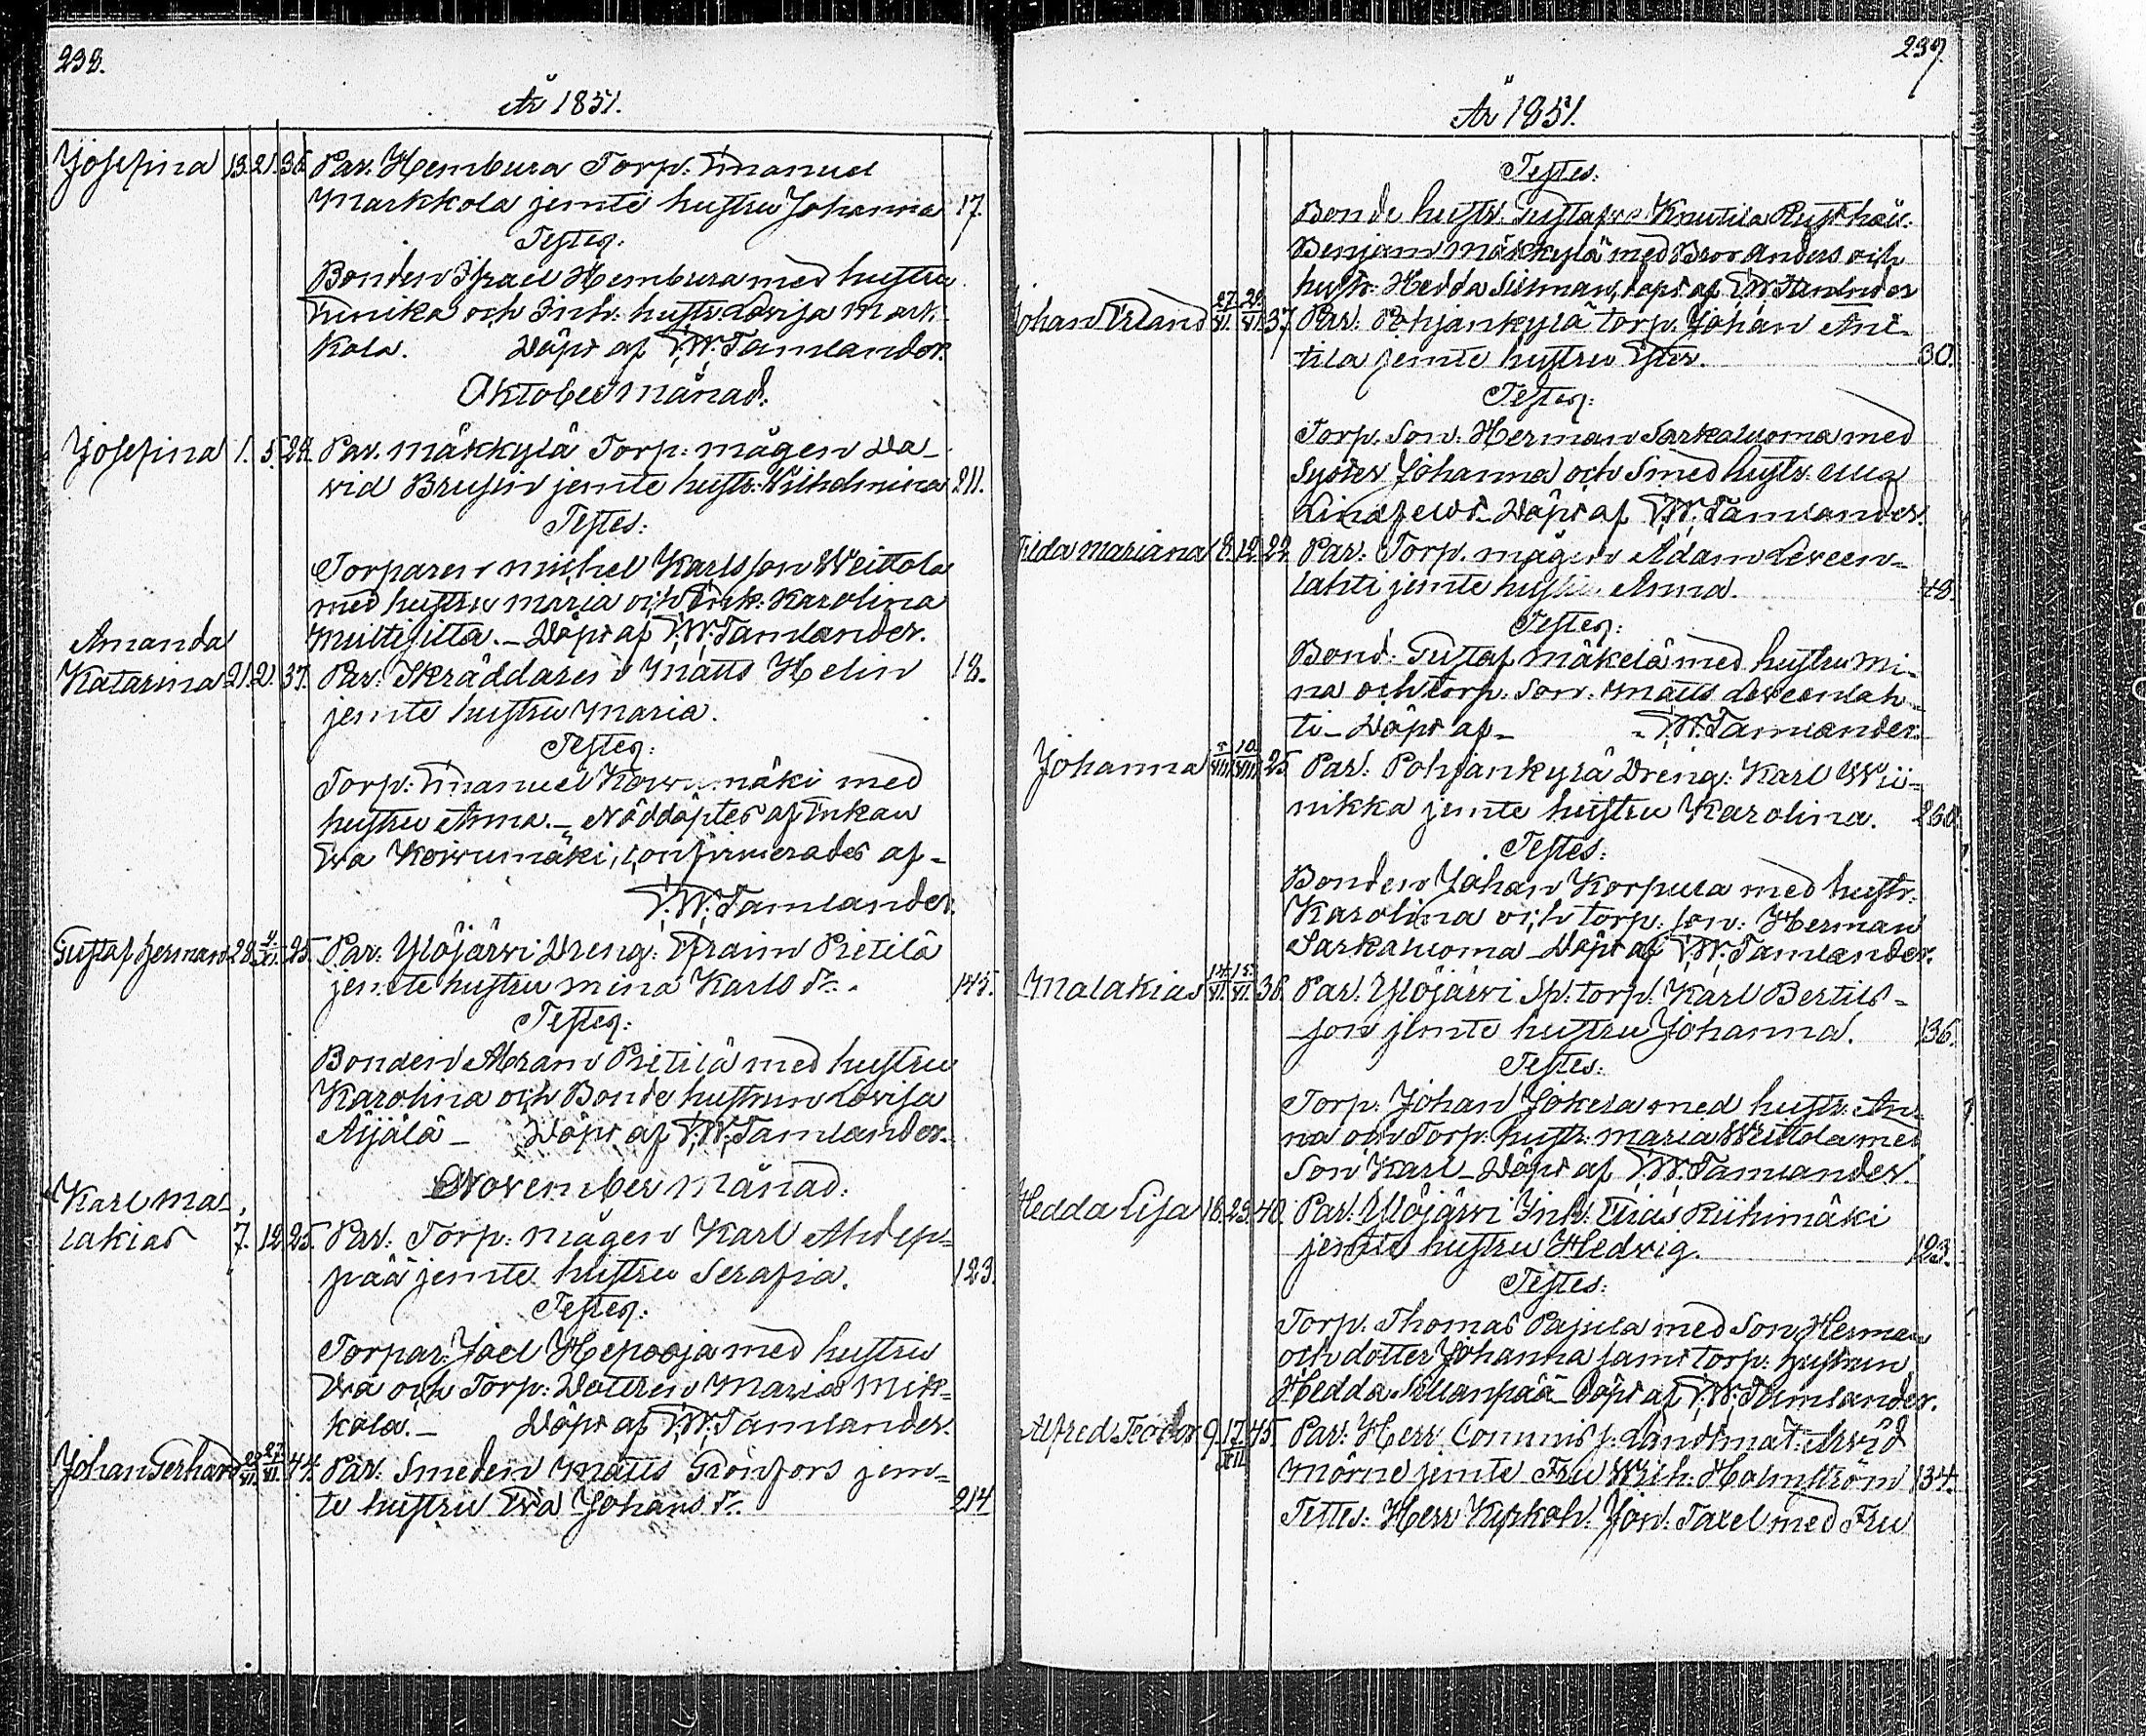 238.
År 1851.
Josefina 13. 21. 36. Par. Hembura Torp: Emanuel
Markkola jemte hustru Johanna 17.
Testes:
Bonden Israel Hembura med hustru
Eunika och Inh: hustr: Lovisa Mark-
kola. Döpt af F.W. Tamlander.
Oktober Månad.
Josefina 1. 5. 24. Par. Mäkkylä Torp: mågen Da-
vid Brusin jemte hustr: Vilhelmina 211.
Testes:
Torparen Michel Karlsson Weittola
med hustru Maria och Enk: Karolina
Multisilta. - Döpt af F.W. Tamlander.
Amanda
Katarina 21. 21. 37. Par: Skräddaren Matts Helin 18.
jemte hustru Maria.
Testes:
Torp: Emanuel Koivumäki med
hustru Anna. - Nöddöptes af Enkan
Eva Koivumäki, confirmerades af -
F.W. Tamlander.
Gustaf Herman 28. 4/XI. 25. Par: Ylöjärvi Dreng: Efraim Pietilä
jemte hustru Mina Karls dr. 145.
Testes:
Bonden Abram Pietilä med hustru
Karolina och Bonde hustrun Lovisa
Äijälä - Döpt af F.W. Tamlander.
November Månad.
Karl Ma-
lakias 7. 12. 25. Par: Torp: mågen Karl Ahdep-
pää jemte hustru Serafia. 123.
Testes:
Torpar: Joel Hepooja med hustru
Eva och Torp: Dottren Maria Mik-
kola. - Döpt af F.W. Tamlander.
Johan Gerhard 44. Par: Smeden Matts Grönfors jem-
te hustru Eva Johans dr. 214
239.
År 1851.
Testes:
Bonde hustr: Gustafva Knutila Rusthåll:
Benjam Mäkkylä med Bror Anders och
hustr: Hedda Siliman, döpt af F.W. Tamlander
Johan Erland 37. Par: Pohjankylä torp: Johan Ant-
tila jemte hustru Ester. 30.
Testes:
Torp. Son: Herman Sarkaluoma med
Syster Johanna och Smed hustr:
Lindfeldt - Döpt af F.W. Tamlander.
Mariana 8. 12. 22. Par: Torp. mågen Adam Leveen-
lahti jemte hustru Anna. 48.
Testes:
Bond: Gustaf Mäkelä med hustru Mi-
na och torp: Son: Matts Leveenlah-
ti - Döpt af - F.W. Tamlander.
Johanna 5/VIII 10/VIII 25. Par: Pohjankylä Dreng: Karl Wii-
nikka jemte hustru Karolina. 260.
Testes:
Bonden Johan Korpula med hustr:
Karolina och torp: son: Herman
Sarkaluoma - Döpt af F.W. Tamlander.
Malakias 14/VI. 15/VI. 36. Par: Ylöjärvi Sp: torp: Karl Bertils-
son jemte hustru Johanna. 136.
Testes:
Torp: Johan Jokela med hustr: An-
na och Torp: hustr: Maria Weittola med
Son Karl - Döpt af F.W. Tamlander.
Hedda Lisa 18. 23. 40. Par: Ylöjärvi Inh: Elias Riihimäki
jemte hustru Hedvig. 123.
Testes:
Torp: Thomas Pajula med Son Herman
och dotter Johanna samt torp: hustrun
Hedda Sillanpää - Döpt af F.W. Tamlander.
Alfred Teodor 9. 17/XII. 45. Par: Herr Commis: Landtmät: Arvid
Mörne jemte Fru Wilh: Holmström 134.
Testes: Herr Kyrkoh: Jon: Taxel med Fru